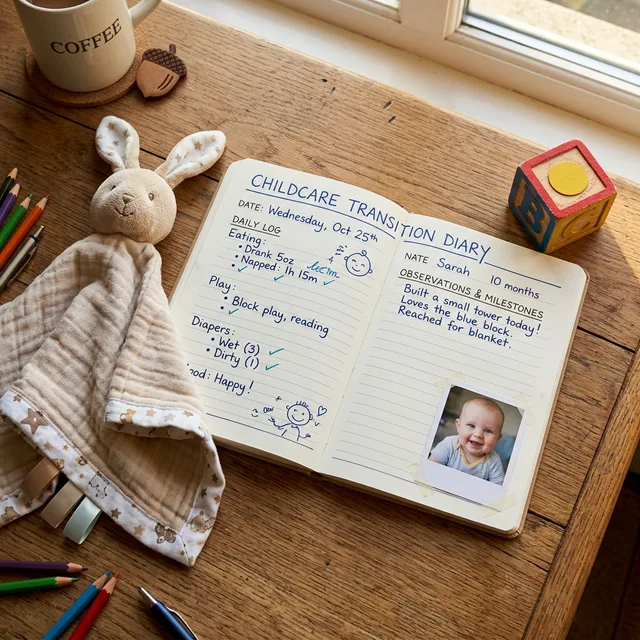 COFFEE
CHILDCARE TRANSITION DIARY
DATE: Wednesday, Oct 25th
DAILY LOG
Eating:
• Drank 5oz
• Napped: 1h 15m
Play:
• Block play, reading
Diapers:
• Wet (3)
• Dirty (1)
ood: Happy!
NATE Sarah 10 months
OBSERVATIONS & MILESTONES
Built a small tower today!
Loves the blue block.
Reached for blanket.
B